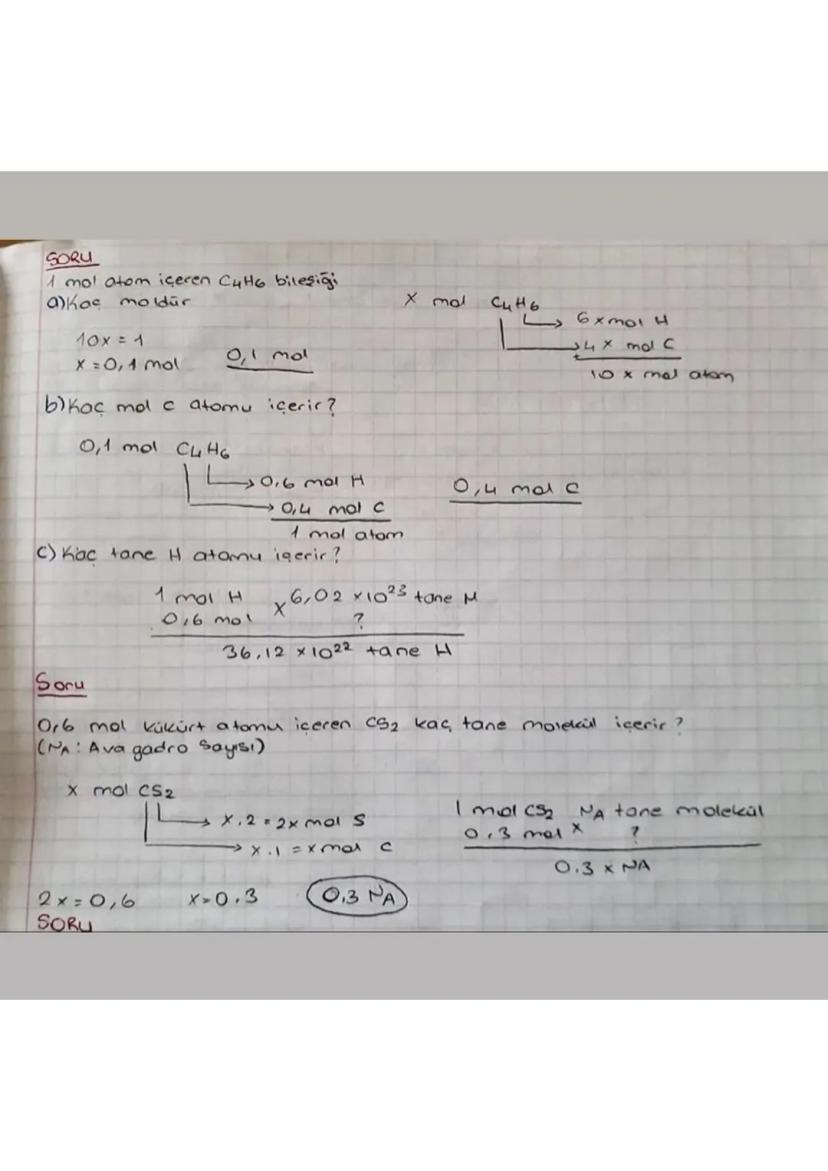 SORU
1 mol atom içeren C4H6 bileşiği
a) Kaç moldür
x mol C4H6
→ 6x mol H
→ 4x mol C
10x mol atom
10x = 1
x = 0,1 mol
0,1 mol
b) Kaç mol c atomu içerir?
0,1 mol C4H6
→ 0,6 mol H
→ 0,4 mol C
1 mol atom
0,4 mol C
c) Kaç tane H atomu içerir?
1 mol H x 6,02 x 10²³ tane H
0,6 mol ?
36,12 x 10²² tane H
Soru
0,6 mol kükürt atomu içeren CS2 kaç tane molekül içerir?
(NA: Avagadro Sayısı)
x mol CS2
→ x.2 = 2x mol S
→ x.1 = x mol C
1 mol CS2 NA tane molekül
0.3 mol x ?
0.3 x NA
2x = 0,6 x = 0.3 0,3 NA
SORU